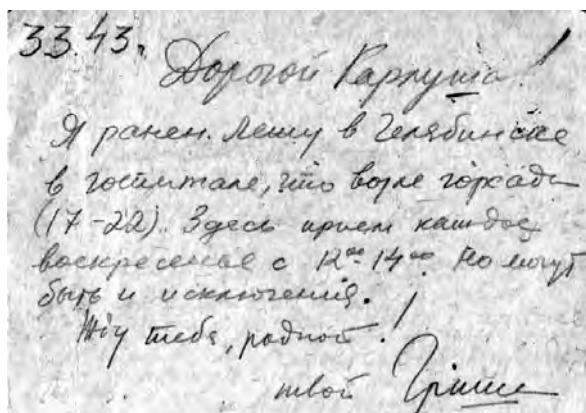 3 3.43.
Дорогой Карпуша!
Я ранен. Лежу в Челябинске
в госпитале, что возле горсада
(17-22). Здесь прием каждое
воскресенье с 12⁰⁰-14⁰⁰. Но могут
быть и исключения.
Жду тебя, родной!
твой Гриша